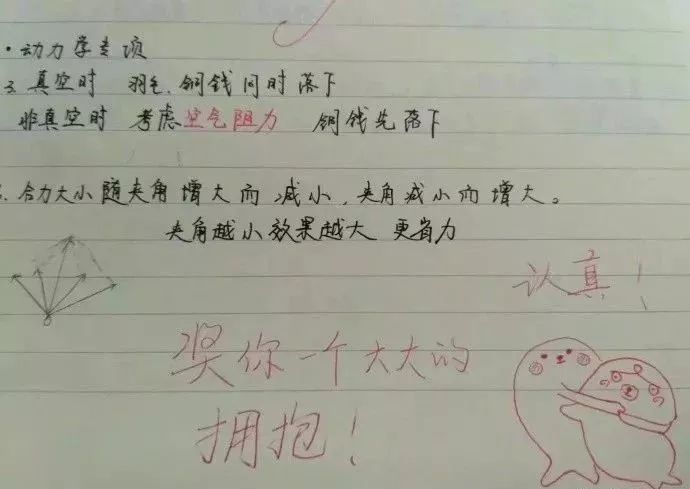 ·动力学专项
3. 真空时 羽毛、铜钱同时落下
非真空时 考虑空气阻力 铜钱先落下
合力大小随夹角增大而减小，夹角减小而增大。
夹角越小效果越大 更省力
认真！
奖你一个大大的
拥抱！